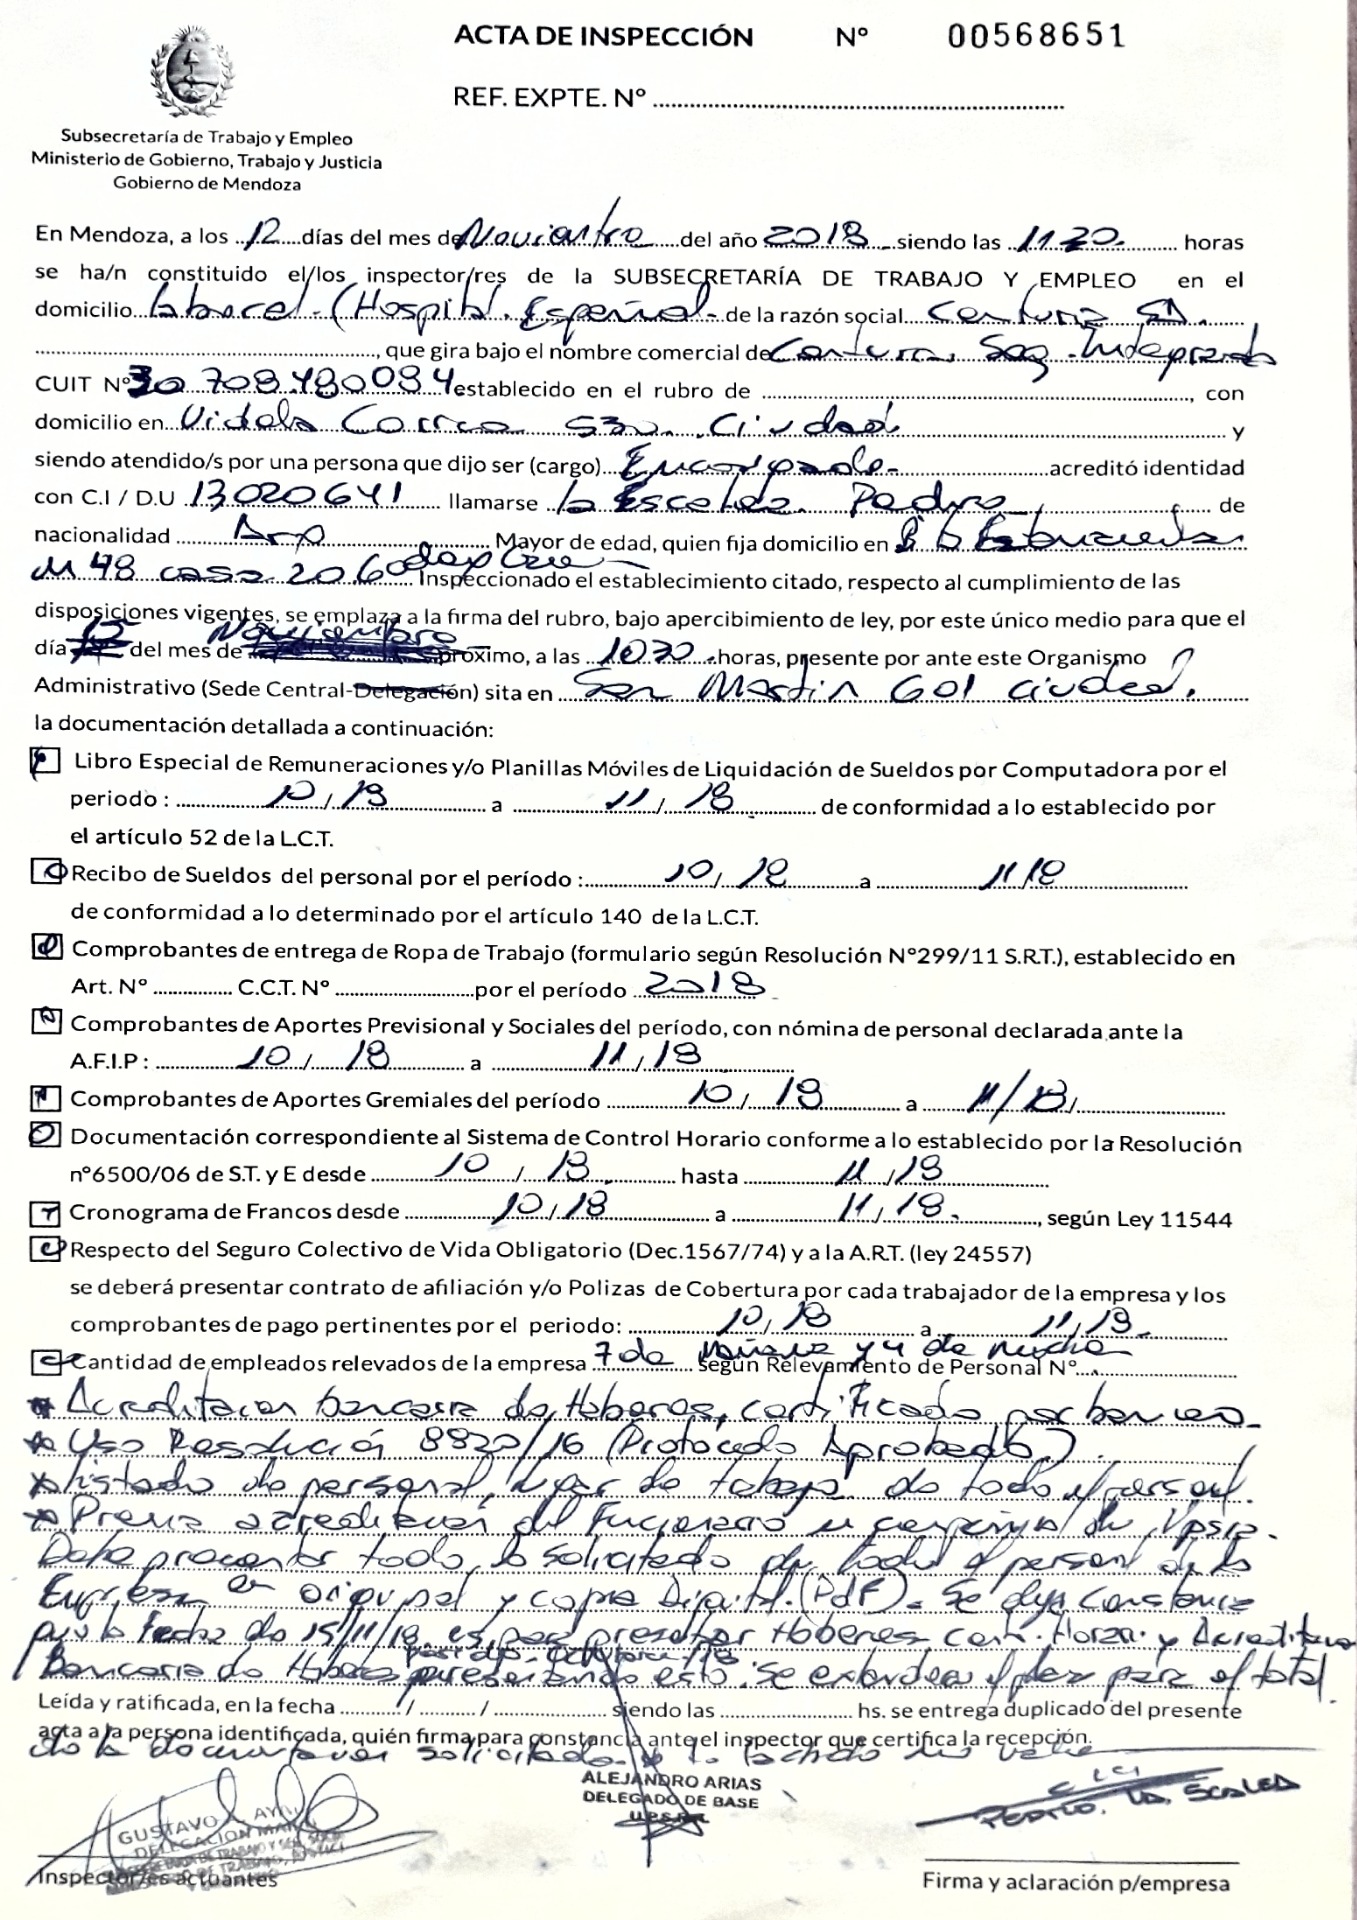 ACTA DE INSPECCIÓN Nº 00568651
REF. EXPTE. Nº
Subsecretaría de Trabajo y Empleo
Ministerio de Gobierno, Trabajo y Justicia
Gobierno de Mendoza
En Mendoza, a los 12 días del mes de Noviembre del año 2018 siendo las 1120 horas
se ha/n constituido el/los inspector/res de la SUBSECRETARÍA DE TRABAJO Y EMPLEO en el
domicilio laboral (Hospital Español de la razón social Centuria SA.
, que gira bajo el nombre comercial de Centuria Seg.
CUIT Nº 30 708480084 establecido en el rubro de , con
domicilio en Videla Correa 530 Ciudad y
siendo atendido/s por una persona que dijo ser (cargo) Encargado acreditó identidad
con C.I / D.U 13020641 llamarse la Escalea Pedro de
nacionalidad Arg Mayor de edad, quien fija domicilio en
M 48 casa 206 Inspeccionado el establecimiento citado, respecto al cumplimiento de las
disposiciones vigentes, se emplaza a la firma del rubro, bajo apercibimiento de ley, por este único medio para que el
día 15 del mes de Noviembre próximo, a las 1030 horas, presente por ante este Organismo
Administrativo (Sede Central-Delegación) sita en San Martin 601 ciudad.
la documentación detallada a continuación:
Libro Especial de Remuneraciones y/o Planillas Móviles de Liquidación de Sueldos por Computadora por el
periodo : 10/18 a 11/18 de conformidad a lo establecido por
el artículo 52 de la L.C.T.
Recibo de Sueldos del personal por el período : 10/18 a 11/18
de conformidad a lo determinado por el artículo 140 de la L.C.T.
Comprobantes de entrega de Ropa de Trabajo (formulario según Resolución Nº299/11 S.R.T.), establecido en
Art. Nº C.C.T. Nº por el período 2018
Comprobantes de Aportes Previsional y Sociales del período, con nómina de personal declarada ante la
A.F.I.P : 10/18 a 11/18
Comprobantes de Aportes Gremiales del período 10/18 a 11/18
Documentación correspondiente al Sistema de Control Horario conforme a lo establecido por la Resolución
nº6500/06 de S.T. y E desde 10/18 hasta 11/18
Cronograma de Francos desde 10/18 a 11/18 , según Ley 11544
Respecto del Seguro Colectivo de Vida Obligatorio (Dec.1567/74) y a la A.R.T. (ley 24557)
se deberá presentar contrato de afiliación y/o Polizas de Cobertura por cada trabajador de la empresa y los
comprobantes de pago pertinentes por el periodo: 10/18 a 11/18
Cantidad de empleados relevados de la empresa 7 de mañana y 4 de noche según Relevamiento de Personal Nº
* Acreditacion bancaria de Haberes, certificado por banco
* Uso Resolución 8820/16 (Protocolo Aprobado)
* listado de personal, lugar de trabajo de todo el personal.
* Previa acreditacion del Funcionario
Debe presentar todo lo solicitado de todo el personal de la
Empresa en original y copia Digital (PdF). Se deja Constancia
para la Fecha de 15/11/18 es para presentar Haberes, Cont. Horar. y Acreditacion
Bancaria de Haberes presentando esto se extendera el plazo para el total
Leída y ratificada, en la fecha / / siendo las hs. se entrega duplicado del presente
acta a la persona identificada, quién firma para constancia ante el inspector que certifica la recepción.
de la documentacion solicitada lo tachado no vale
ALEJANDRO ARIAS
DELEGADO DE BASE
GUSTAVO
DELEGACION
PEDRO. LA SCALEA
Inspector/es actuantes
Firma y aclaración p/empresa